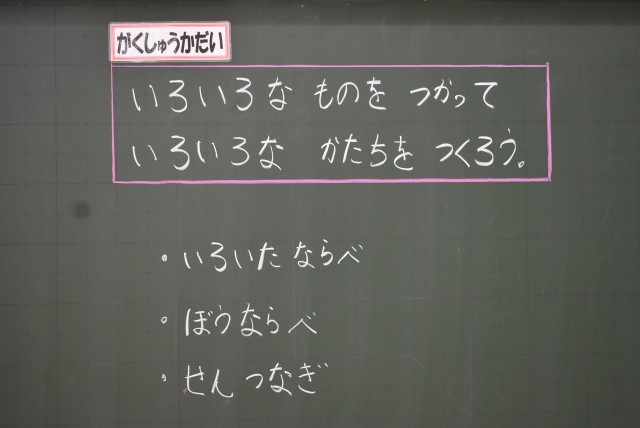 がくしゅうかだい
いろいろな ものを つかって
いろいろな かたちを つくろう。
・いろいたならべ
・ぼうならべ
・せんつなぎ